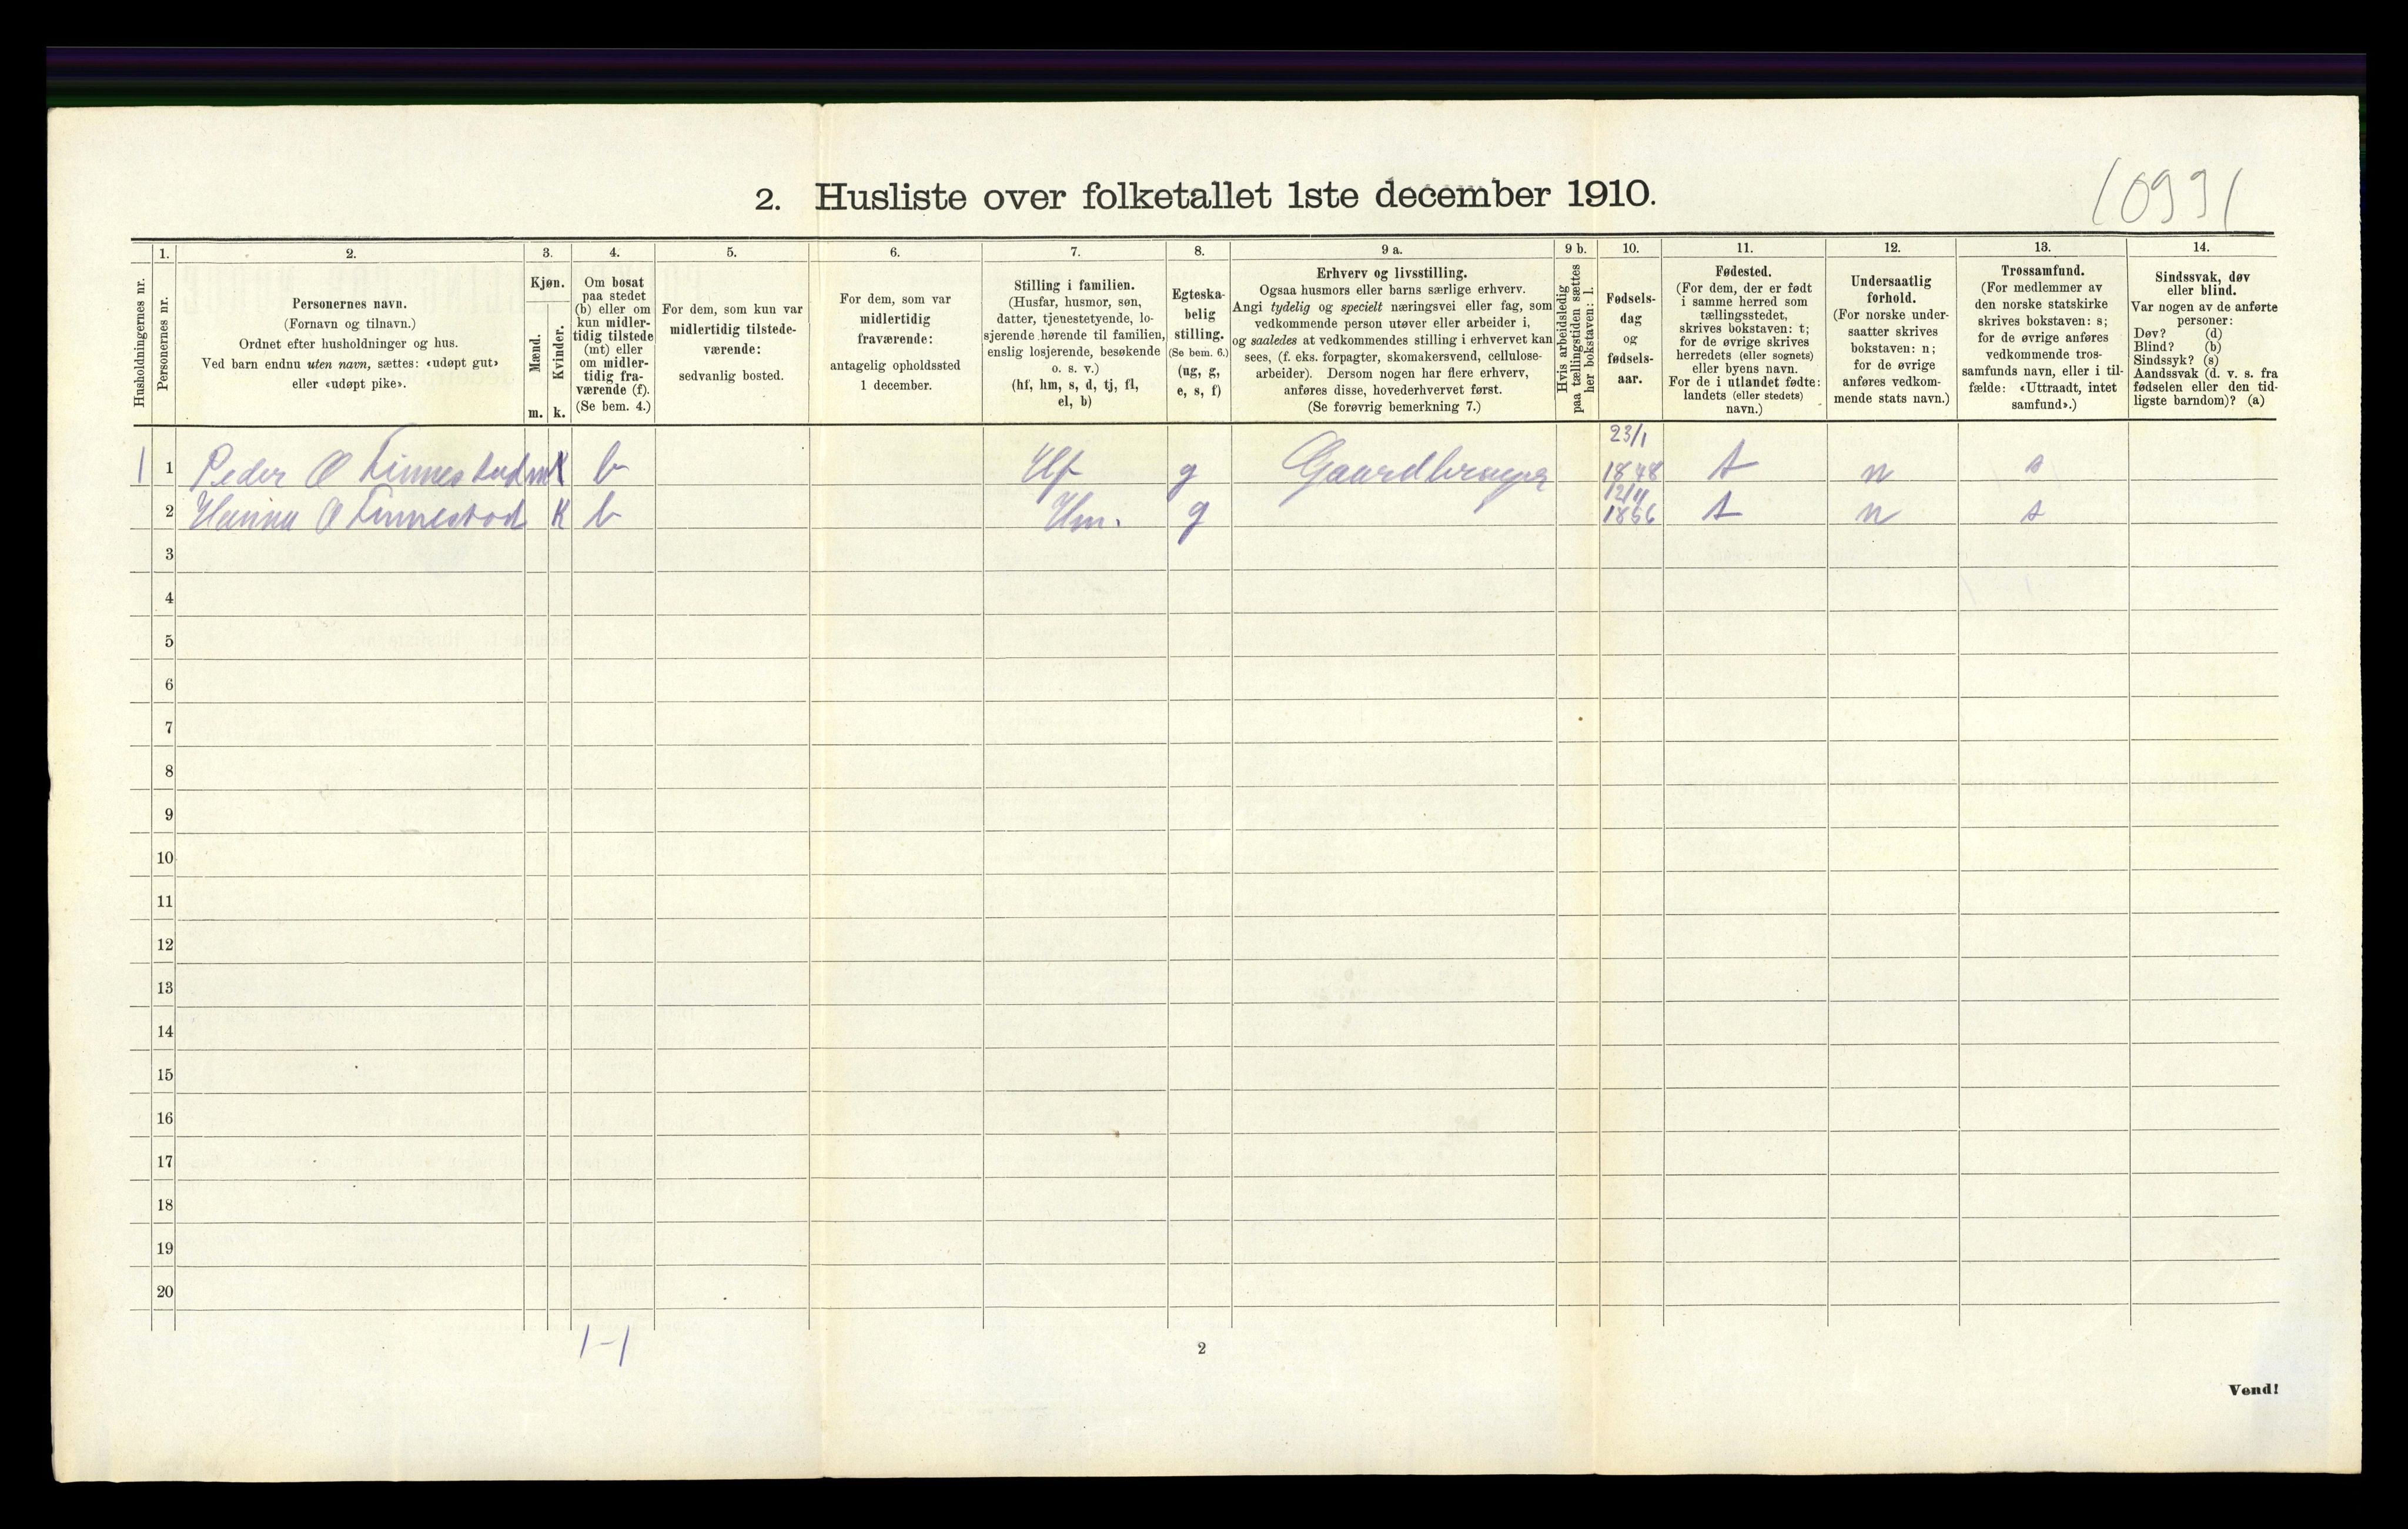 2. Husliste over folketallet 1ste december 1910.
10991
Husholdningernes nr.
1.
Personernes nr.
2.
Personernes navn.
(Fornavn og tilnavn.)
Ordnet efter husholdninger og hus.
Ved barn endnu uten navn, sættes: «udøpt gut»
eller «udøpt pike».
3.
Kjøn.
Mænd.
Kvinder.
m. k.
4.
Om bosat
paa stedet
(b) eller om
kun midler-
tidig tilstede
(mt) eller
om midler-
tidig fra-
værende (f).
(Se bem. 4.)
5.
For dem, som kun var
midlertidig tilstede-
værende:
sedvanlig bosted.
6.
For dem, som var
midlertidig
fraværende:
antagelig opholdssted
1 december.
7.
Stilling i familien.
(Husfar, husmor, søn,
datter, tjenestetyende, lo-
sjerende hørende til familien,
enslig losjerende, besøkende
o. s. v.)
(hf, hm, s, d, tj, fl,
el, b)
8.
Egteska-
belig
stilling.
(Se bem. 6.)
(ug, g,
e, s, f)
9 a.
Erhverv og livsstilling.
Ogsaa husmors eller barns særlige erhverv.
Angi tydelig og specielt næringsvei eller fag, som
vedkommende person utøver eller arbeider i,
og saaledes at vedkommendes stilling i erhvervet kan
sees, (f. eks. forpagter, skomakersvend, cellulose-
arbeider). Dersom nogen har flere erhverv,
anføres disse, hovederhvervet først.
(Se forøvrig bemerkning 7.)
9 b.
Hvis arbeidsledig
paa tællingstiden sættes
her bokstaven: l.
10.
Fødsels-
dag
og
fødsels-
aar.
11.
Fødested.
(For dem, der er født
i samme herred som
tællingsstedet,
skrives bokstaven: t;
for de øvrige skrives
herredets (eller sognets)
eller byens navn.
For de i utlandet fødte:
landets (eller stedets)
navn.)
12.
Undersaatlig
forhold.
(For norske under-
saatter skrives
bokstaven: n;
for de øvrige
anføres vedkom-
mende stats navn.)
13.
Trossamfund.
(For medlemmer av
den norske statskirke
skrives bokstaven: s;
for de øvrige anføres
vedkommende tros-
samfunds navn, eller i til-
fælde: «Uttraadt, intet
samfund».)
14.
Sindssvak, døv
eller blind.
Var nogen av de anførte
personer:
Døv? (d)
Blind? (b)
Sindssyk? (s)
Aandssvak (d. v. s. fra
fødselen eller den tid-
ligste barndom)? (a)
1 1 Peder O Finnestad m b Hf g Gaardbruger 23/1 1848 t n s
2 Hanna O Finnestad K b Hm. g 1856 t n s
3
4
5
6
7
8
9
10
11
12
13
14
15
16
17
18
19
20
1-1
2
Vend!